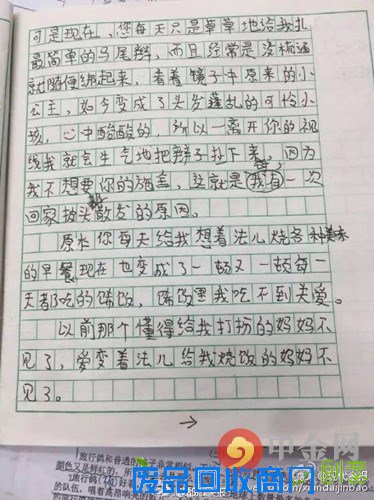 可是现在，您每天只是草草地给我扎
最简单的马尾辫，而且经常是没梳通
就随便绑起来，看着镜子中原来的小
公主，如今变成了头发蓬乱的可怜小
孩，心中酸酸的，所以一离开你的视
线我就会生气地把辫子扯下来，因为
我不想要你的施舍，这就是我有一次
回家披头散发的原因。
原本你每天给我想着法儿烧各种美味
的早餐现在也变成了一顿又一顿每一
天都吃的稀饭，稀饭里我吃不到关爱。
以前那个懂得给我打扮的妈妈不
见了，爱变着法儿给我烧饭的妈妈不
见了。
→
中金网
废品回收商网